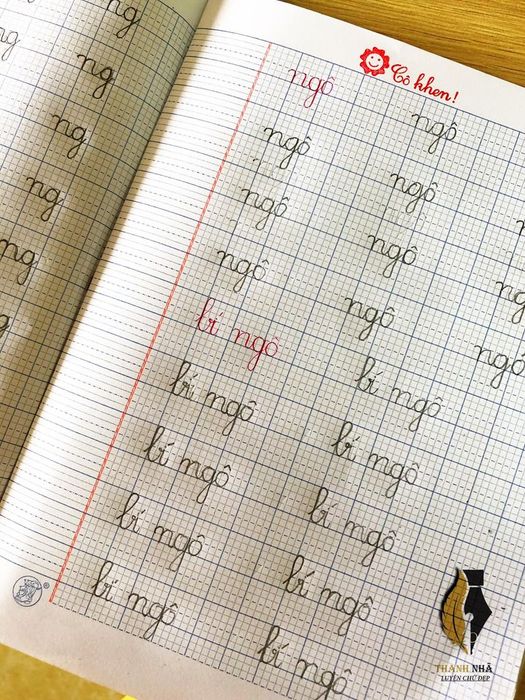 ng
ng
ng
ng
ng
ng
Cô khen!
ngô ngô
ngô ngô
ngô ngô
ngô ngô ngô
bí ngô bí ngô
bí ngô bí ngô
bí ngô bí ngô
bí ngô bí ngô
bí ngô bí ngô
THANH NHÃ
LUYỆN CHỮ ĐẸP